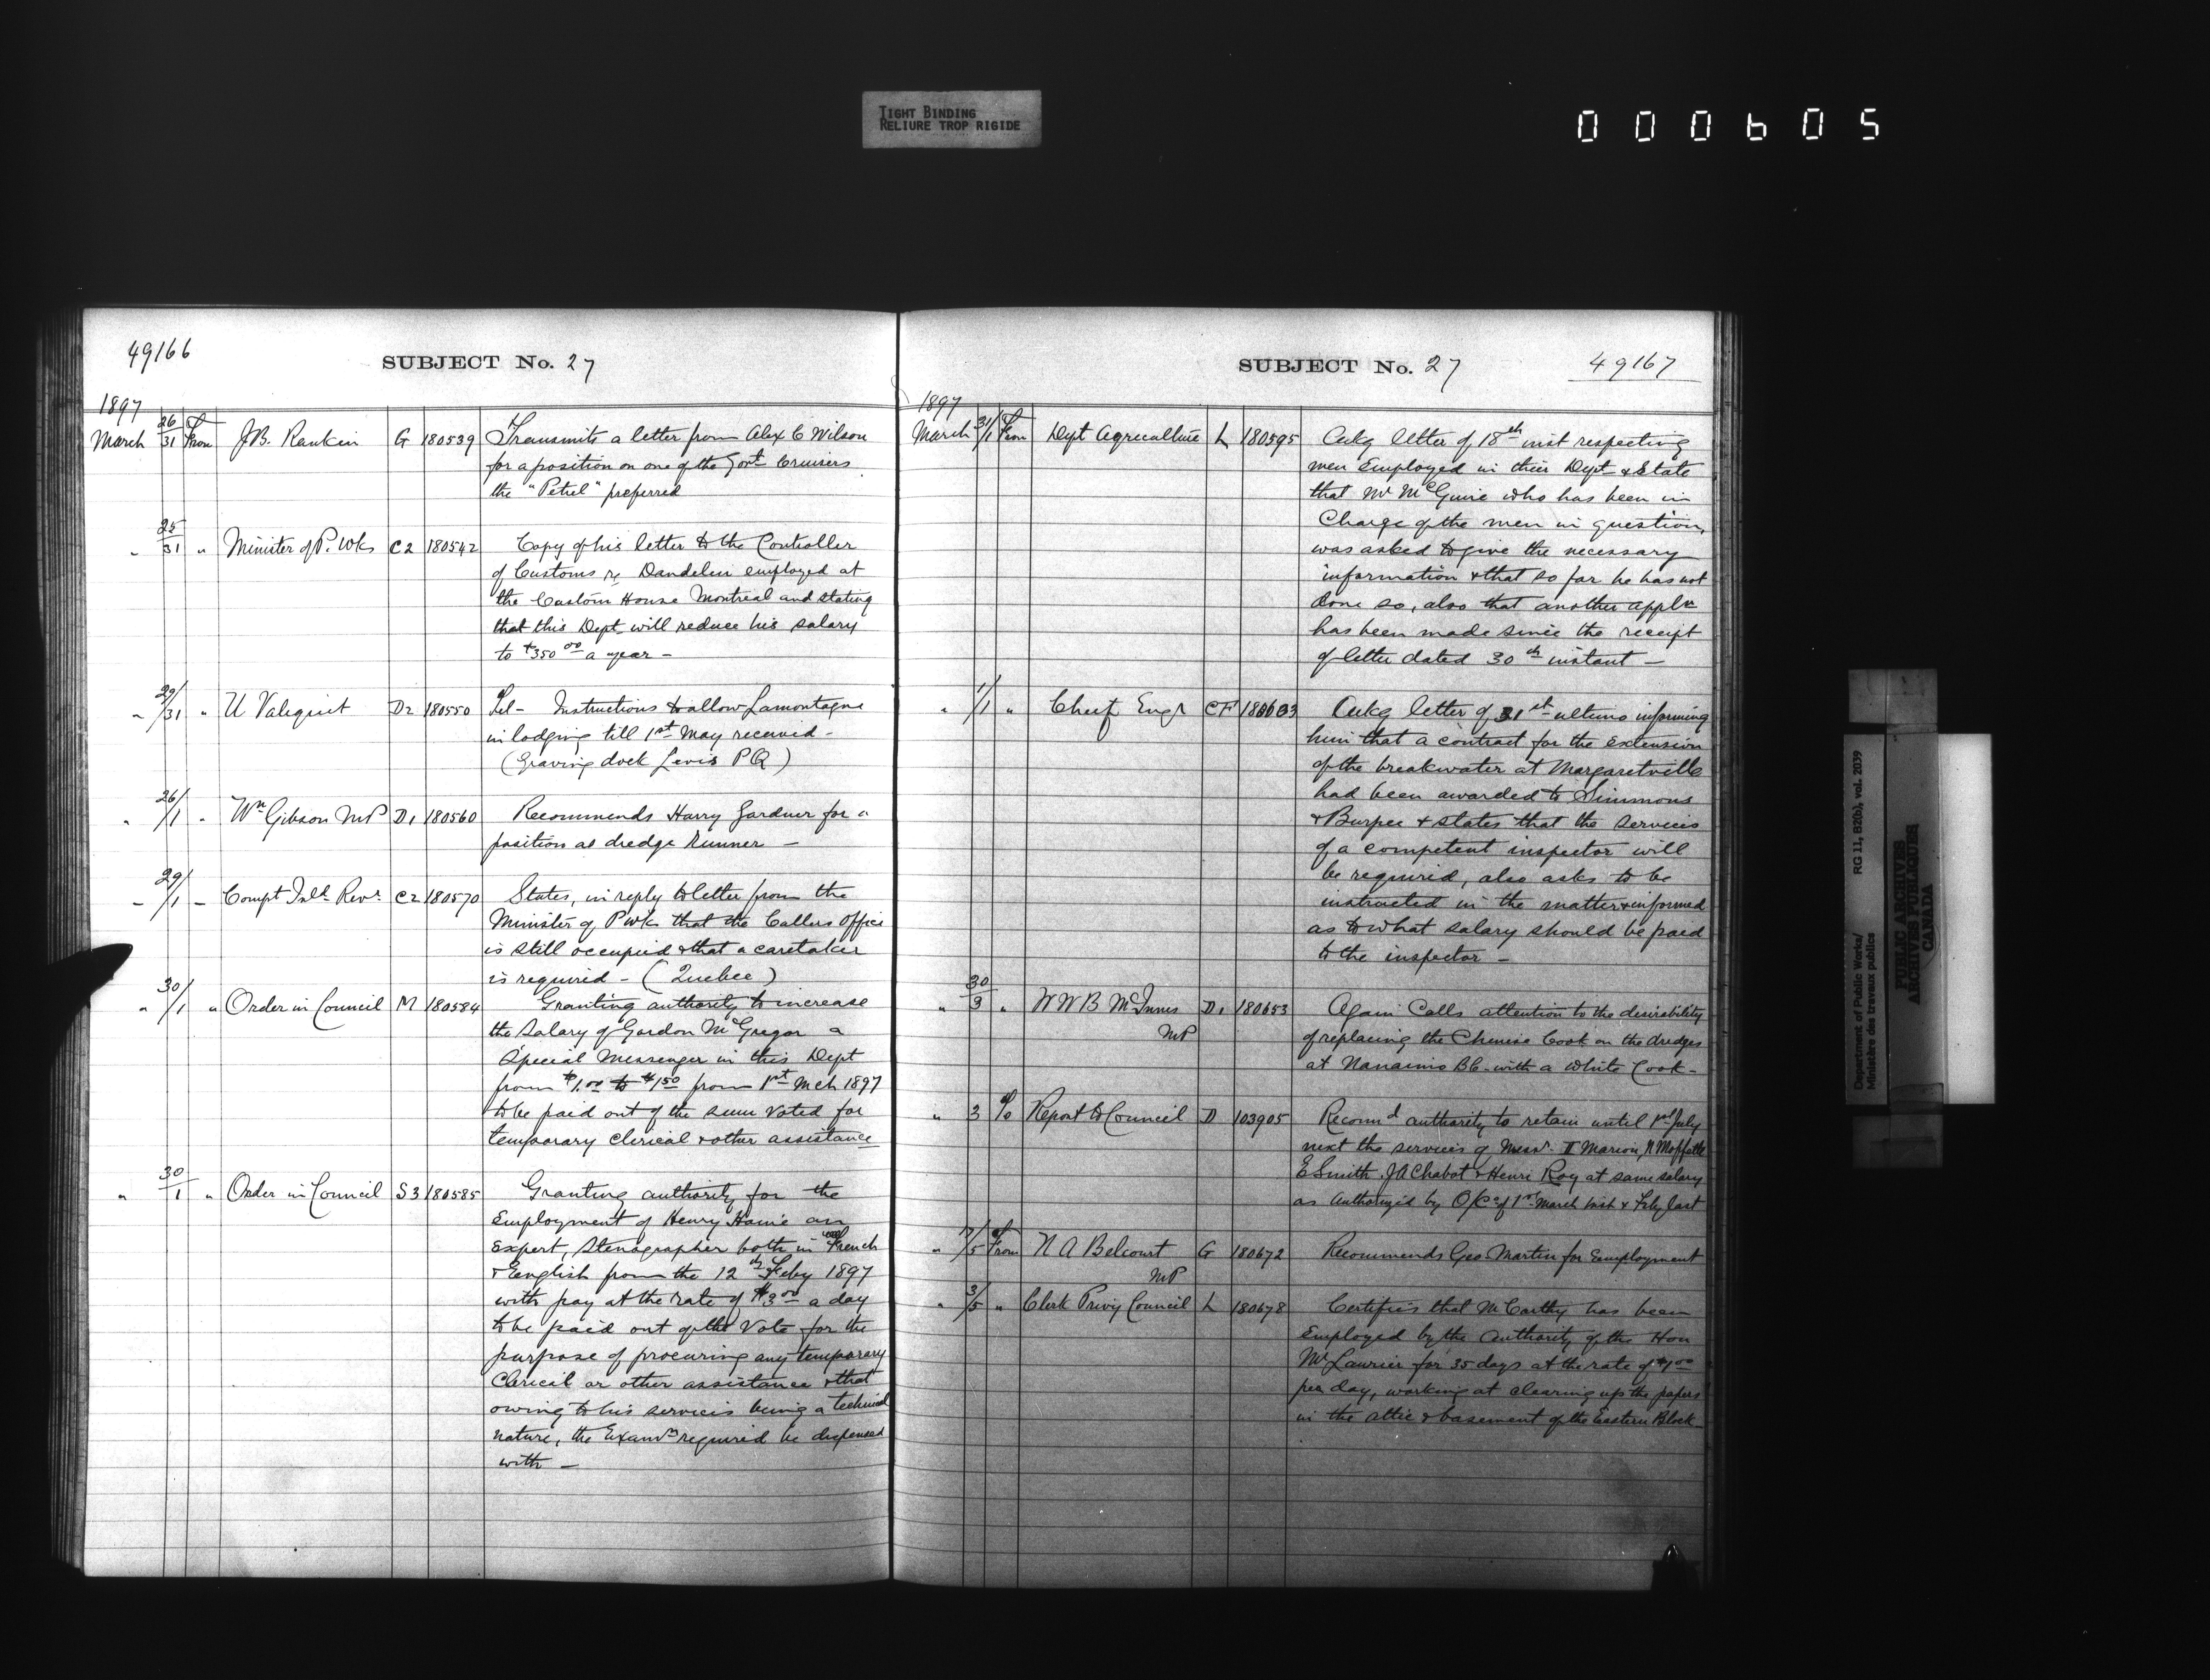 TIGHT BINDING
RELIURE TROP RIGIDE
000605
49166
SUBJECT No. 27
1897
March 26/31 From J.B. Rankin G 180539 Transmits a letter from Alex C Wilson
for a position on one of the Govt Cruisers
the "Petrel" preferred
" 25/31 " Minister of P. Wks C2 180542 Copy of his letter to the Controller
of Customs re Dandelin employed at
the Custom House Montreal and stating
that this Dept will reduce his salary
to $350 00 a year -
" 29/31 " U Valiquit D2 180550 Tel - Instructions to allow Lamontagne
in lodging till 1st May received -
(Graving dock Levis PQ)
" 26/1 " Wm Gibson MP D1 180560 Recommends Harry Gardner for a
position as dredge Runner -
" 29/1 - Compt Inld Revr C2 180570 States, in reply to letter from the
Minister of P Wks that the Cullers Office
is still occupied & that a caretaker
is required - (Quebec)
" 30/1 " Order in Council M 180584 Granting authority to increase
the salary of Gordon McGregor a
Special Messenger in this Dept
from $1.00 to $1 50 from 1st Mch 1897
to be paid out of the sum voted for
temporary clerical & other assistance
" 30/1 " Order in Council S3 180585 Granting authority for the
Employment of Henry Horne an
Expert, Stenographer both in French
& English from the 12th Feby 1897
with pay at the rate of $3 00 a day
to be paid out of the Vote for the
purpose of procuring any temporary
Clerical or other assistance & that
owing to his services being a technical
nature, the Examn required be dispensed
with -
SUBJECT No. 27
49167
1897
March 31/1 From Dept Agriculture L 180595 Ackg letter of 18th inst respecting
men Employed in their Dept & State
that Mr McGuire who has been in
Charge of the men in question,
was asked to give the necessary
information & that so far he has not
done so, also that another appln
has been made since the receipt
of letter dated 30th instant -
" 1/1 " Chief Engr CF Ackg letter of 31st ultimo informing
him that a contract for the extension
of the breakwater at Margaretville
had been awarded to Simmons
& Burpee & states that the services
of a competent inspector will
be required, also asks to be
instructed in the matter & informed
as to what salary should be paid
to the inspector -
" 30/3 " W W B McInnes D1 180653 Again Calls attention to the desirability
MP of replacing the Chinese Cook on the dredges
at Nanaimo BC. with a White Cook -
" 3 To Report to Council D 103905 Recomd authority to retain until 1st July
next the services of Messr. Marion, N Moffette
E Smith J A Chabot & Henri Roy at same salary
as Authorized by O/C of 1st March inst & Feby last
" From N A Belcourt G 180672 Recommends Geo. Martin for Employment
MP
" 3/5 " Clerk Privy Council L 180678 Certifies that McCarthy has been
Employed by the Authority of the Hon
Mr Laurier for 35 days at the rate of $1 00
per day, working at clearing up the papers
in the attic & basement of the Eastern Block -
Department of Public Works/ RG 11, B2(b), vol. 2039
Ministère des travaux publics
PUBLIC ARCHIVES
ARCHIVES PUBLIQUES
CANADA